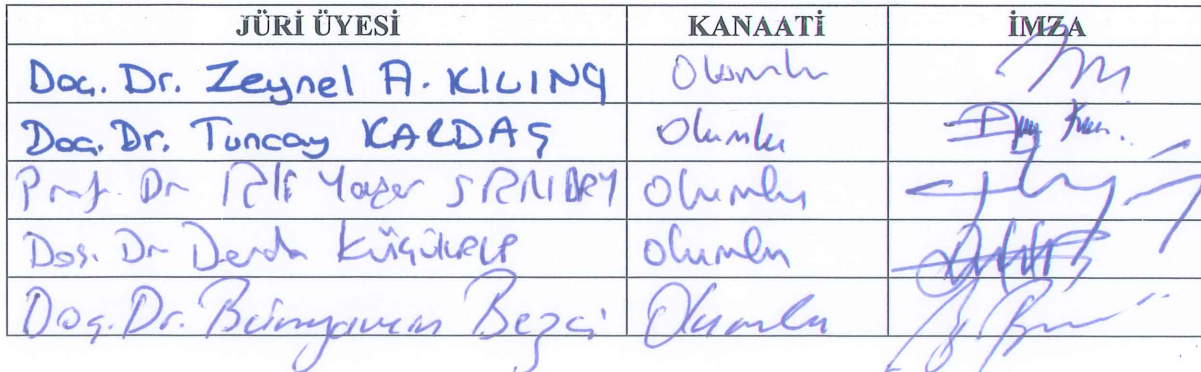 JÜRİ ÜYESİ KANAATİ İMZA
Doç. Dr. Zeynel A. KILINÇ Olumlu
Doç. Dr. Tuncay KARDAŞ Olumlu
Prof. Dr Ali Yaşar SARIBAY Olumlu
Doç. Dr Derda KÜÇÜKALP Olumlu
Doç. Dr. Bünyamin Bezci Olumlu